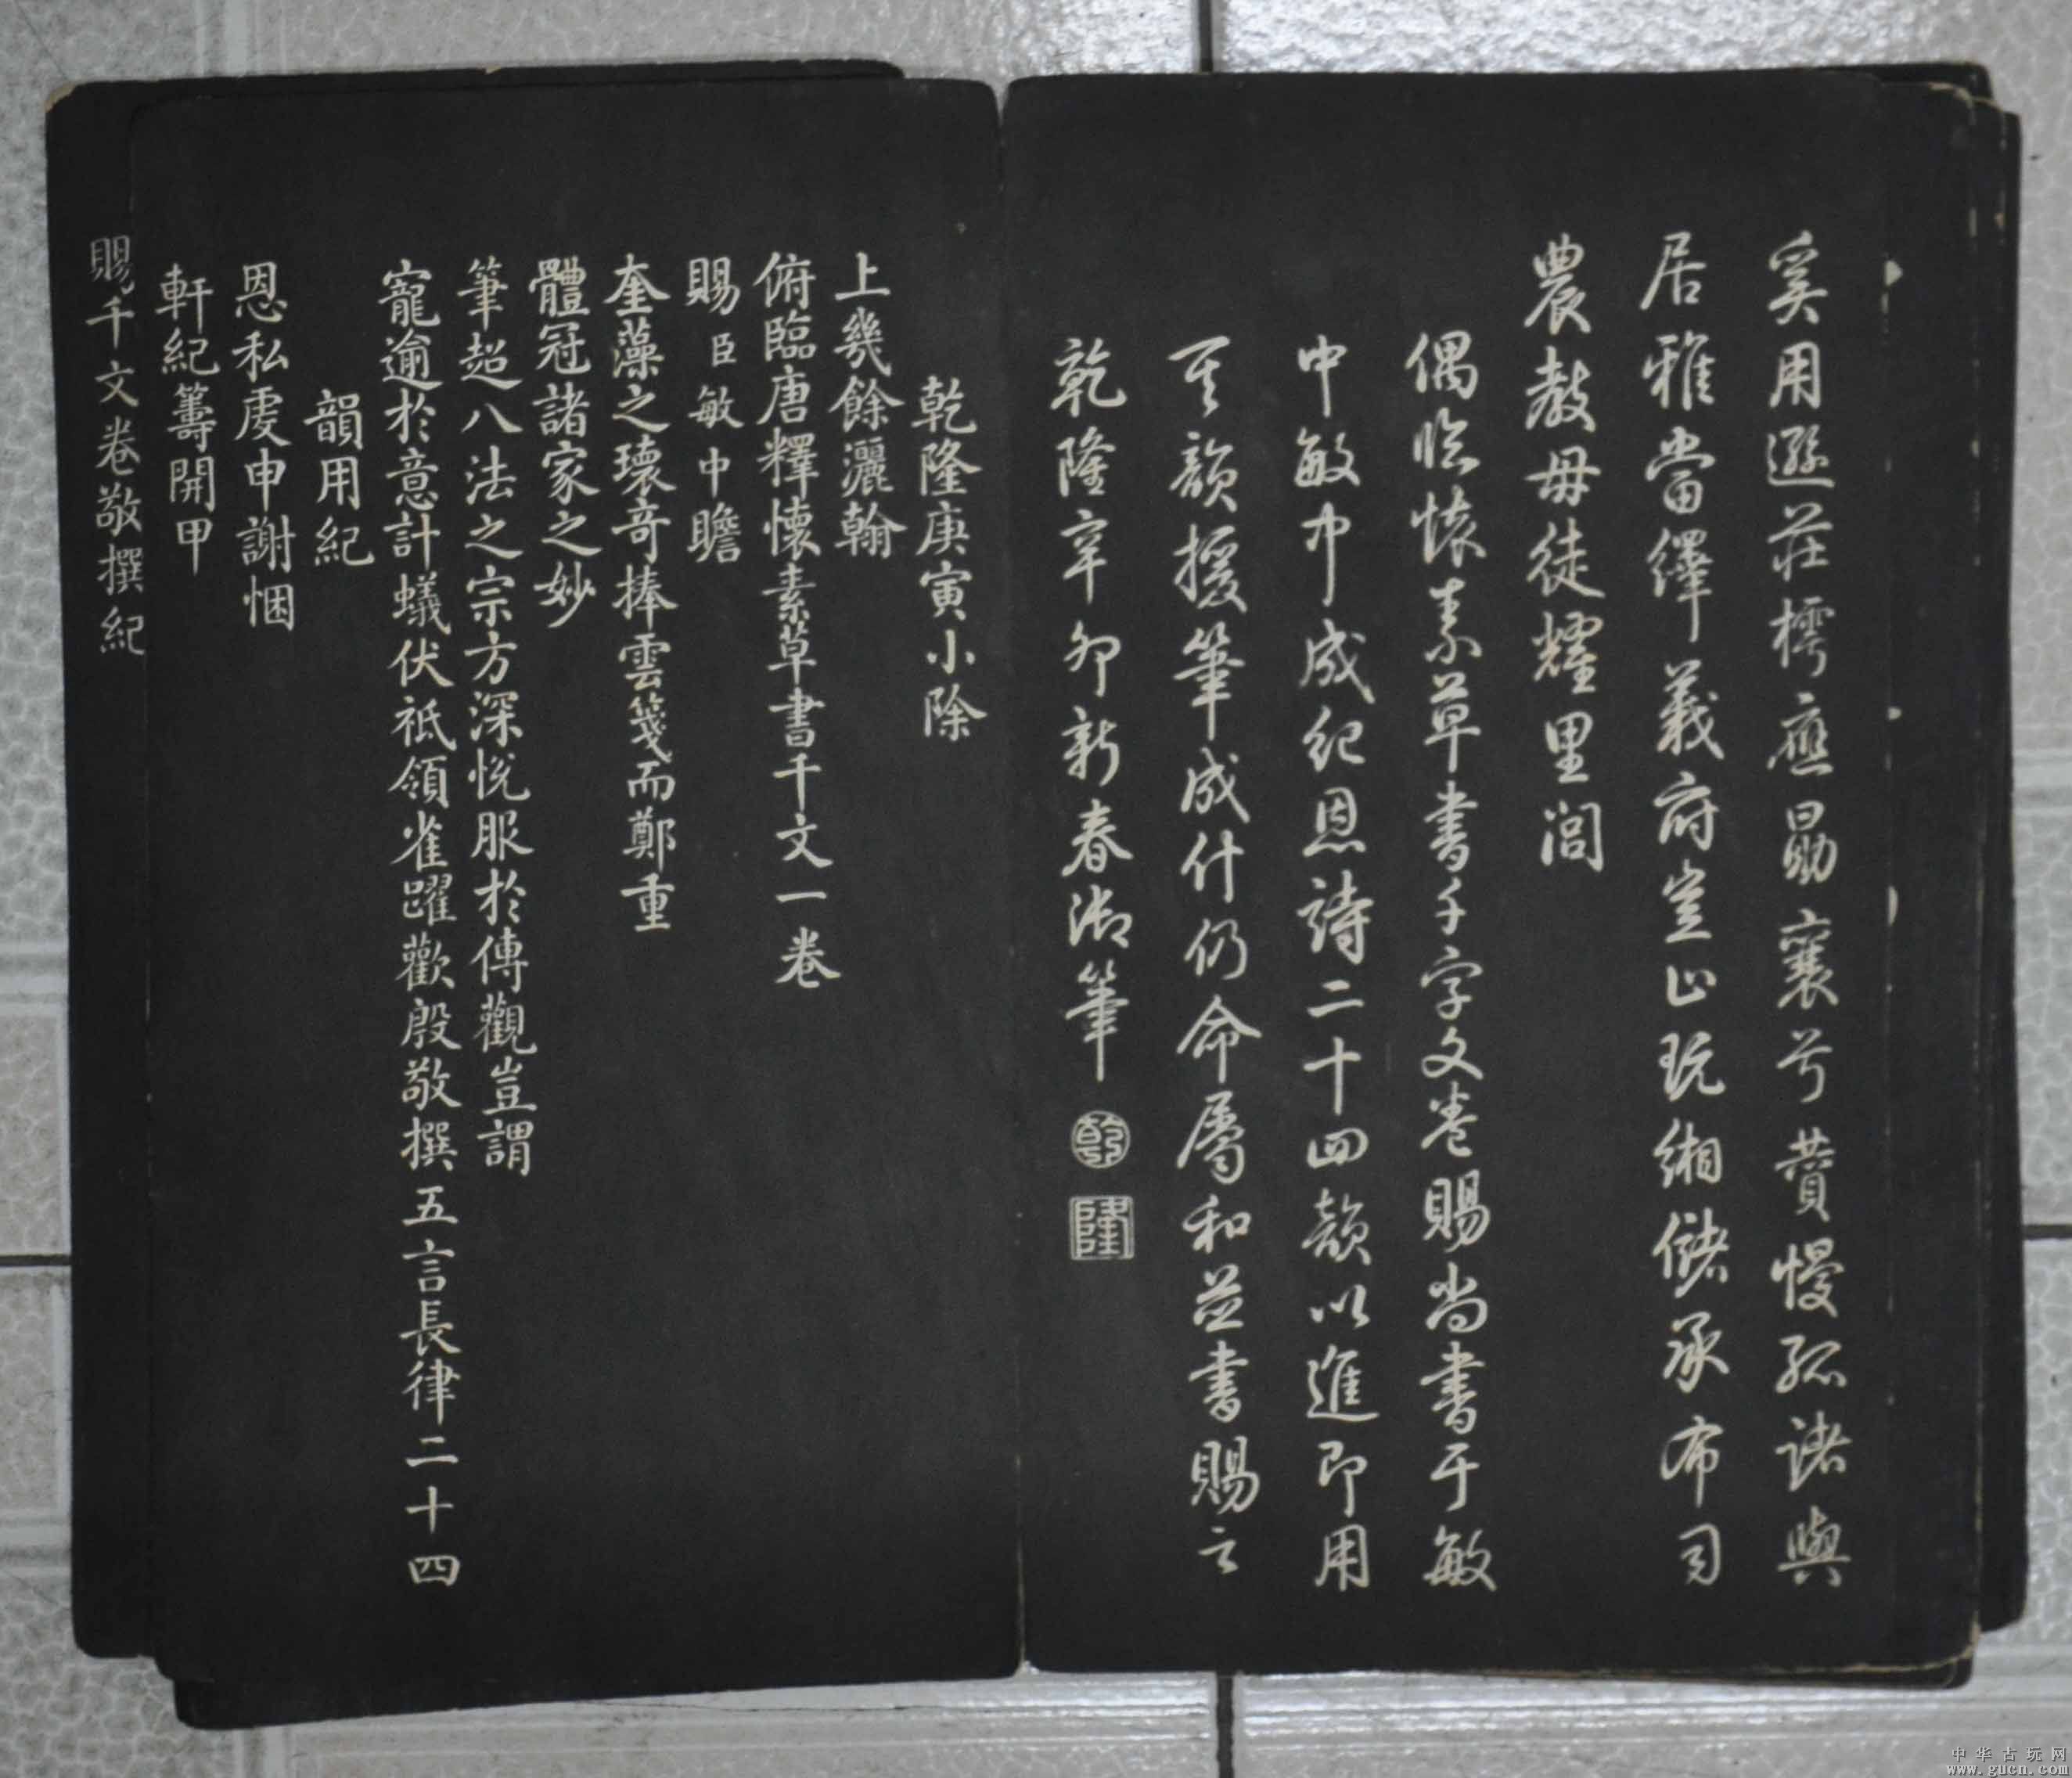 奚用遜莊樗應勗襄兮費慢孤諸與
居雅當繹義府豈止玩緗儲承布司
農教毋徒耀里閭
偶臨懷素草書千字文卷賜尚書于敏
中敏中成紀恩詩二十四韻以進即用
其韻援筆成什仍命屬和並書賜之
乾隆辛卯新春御筆
乾
隆
乾隆庚寅小除
上幾餘灑翰
俯臨唐釋懷素草書千文一卷
賜臣敏中瞻
奎藻之瓌奇捧雲箋而鄭重
體冠諸家之妙
筆超八法之宗方深悅服於傳觀豈謂
寵逾於意計蟻伏祇領雀躍歡殷敬撰五言長律二十四
韻用紀
恩私虔申謝悃
軒紀籌開甲
賜千文卷敬撰紀
中华古玩网
www.gucn.com